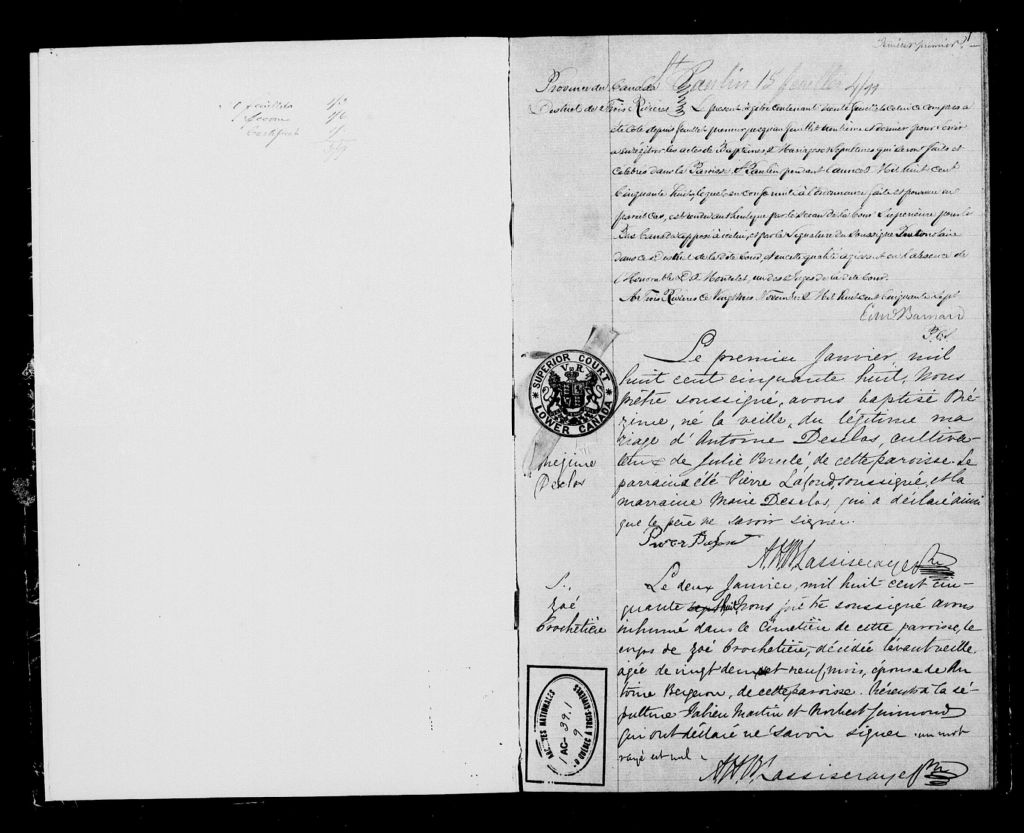 feuillet premier
1
St Paulin 15 feuillets 4/11
Province du Canada
District des Trois Rivières
Le présent registre contenant trente feuillets celui ci compris a
été coté depuis feuillet premier jusqu'au feuillet trentième et dernier pour servir
à enrégistrer les actes de Baptêmes Mariages et Sépultures qui seront faits et
célébrés dans la Paroisse St Paulin pendant l'année Mil huit cent
Cinquante huit, lequel en conformité à l'ordonnance faite et pourvue en
pareil cas, est rendu authentique par le sceau de la Cour Supérieure pour le
Bas Canada apposé à celui, et par la Signature du Soussigné Protonotaire
dans ce District de la dite Cour, et en cette qualité agissant en l'absence de
l'Honorable Mondelet, un des Juges de la dite Cour.
Aux Trois Rivières ce Vingt Novembre Mil huit cent Cinquante sept
Edm Barnard
P.C.S.
SUPERIOR COURT
V R
LOWER CANADA
Onézime
Desclos
Le premier Janvier, mil
huit cent cinquante huit, Nous
prêtre soussigné, avons baptisé Oné-
zime, né la veille, du légitime ma
riage d'Antoine Desclos, cultiva-
teur & de Julie Brulé, de cette paroisse. Le
parrain a été Pierre Lafond, soussigné, et la
marraine Marie Desclos, qui a déclaré ainsi
que le père ne savoir signer.
Pierre Lafond
S.
Zoé
Crochetière
Le deux Janvier, mil huit cent cin-
quante huit, nous prêtre soussigné avons
inhumé dans le cimetière de cette paroisse, le
corps de Zoé Crochetière, décédée l'avant veille
agée de vingt deux et neuf mois, épouse de An
toine Bergeron, de cette paroisse. Présents à la sé-
pulture Fabien Martin et Norbert Guimond
qui ont déclaré ne savoir signer. un mot
rayé est nul.
ARCHIVES NATIONALES
AC- 39.1
9
DU QUÉBEC À TROIS-RIVIÈRES